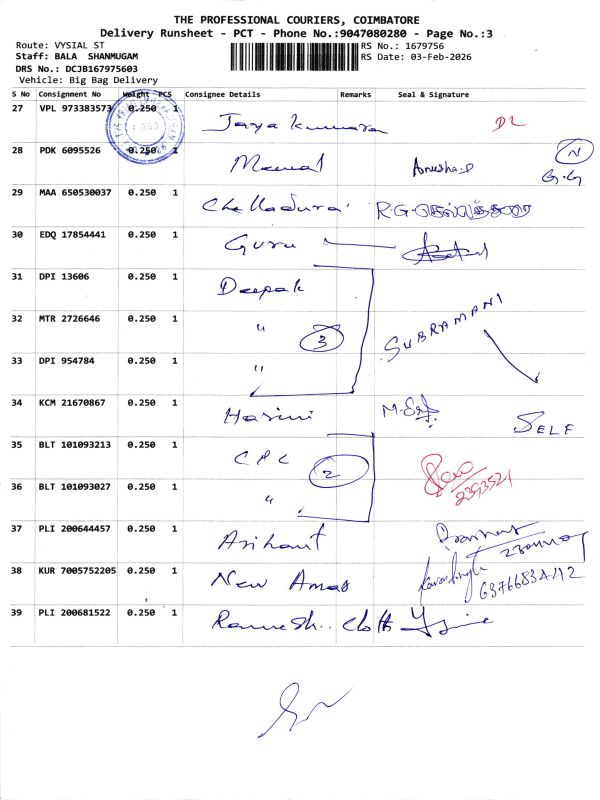 THE PROFESSIONAL COURIERS, COIMBATORE
Delivery Runsheet - PCT - Phone No.:9047080280 - Page No.:3
Route: VYSIAL ST
RS No.: 1679756
Staff: BALA SHANMUGAM
RS Date: 03-Feb-2026
DRS No.: DCJB167975603
Vehicle: Big Bag Delivery
S No Consignment No Weight PCS Consignee Details Remarks Seal & Signature
27 VPL 973383573 0.250 1 Jaya Kumaran DL
28 PDK 6095526 0.250 1 Meenal Anusha.D N
29 MAA 650530037 0.250 1 Chelladurai R.G.
30 EDQ 17854441 0.250 1 Guru
31 DPI 13606 0.250 1 Deepak
32 MTR 2726646 0.250 1 " 3 SUBRAMANI
33 DPI 954784 0.250 1 "
34 KCM 21670867 0.250 1 Hasini SELF
35 BLT 101093213 0.250 1 CPC 2
36 BLT 101093027 0.250 1 " 2393521
37 PLI 200644457 0.250 1 Arihant
38 KUR 7005752205 0.250 1 New Amas
39 PLI 200681522 0.250 1 Ramesh. Cloth